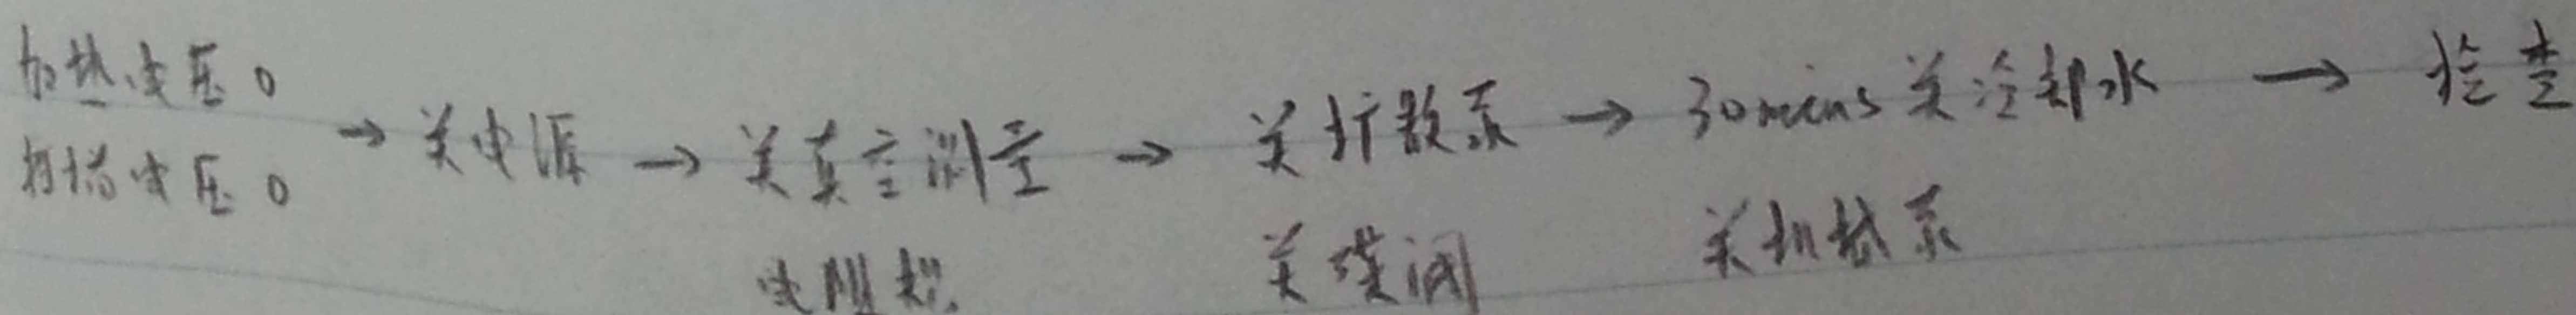 加热电压0
扫描电压0
→ 关电源 → 关真空测量 → 关扩散泵 → 30mins关冷却水 → 检查
电阻规
关碟阀
关机械泵